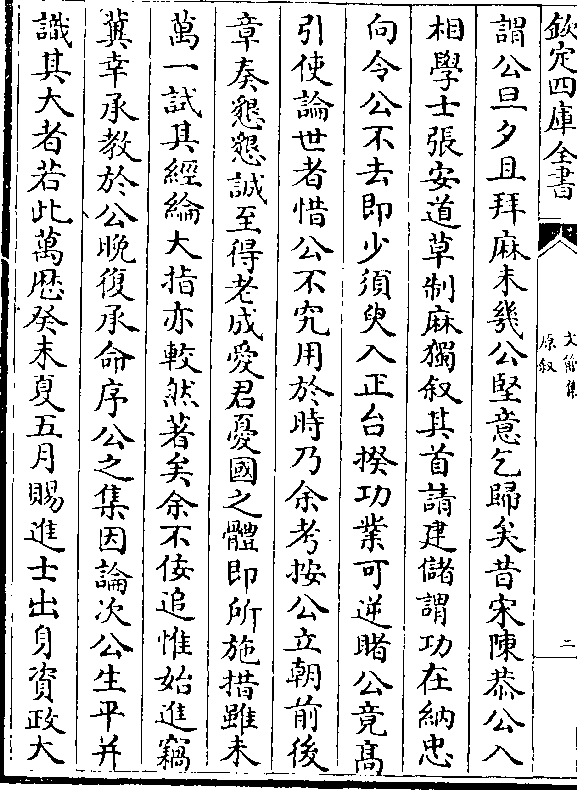 欽定四庫全書
文簡集
原叙
二
謂公旦夕且拜麻未幾公堅意乞歸矣昔宋陳恭公入
相學士張安道草制麻獨叙其首請建儲謂功在納忠
向令公不去即少須臾入正台揆功業可逆睹公竟髙
引使論世者惜公不究用於時乃余考按公立朝前後
章奏懇懇誠至得老成愛君憂國之體即所施措雖未
萬一試其經綸大指亦較然著矣余不佞追惟始進竊
冀幸承教於公晚復承命序公之集因論次公生平并
識其大者若此萬厯癸未夏五月賜進士出身資政大